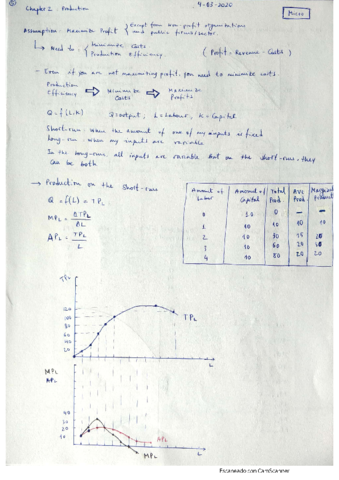 Chapter 2. Production
4-03-2020
Micro
Assumption: Maximize Profit { except from non-profit organizations
and public firms/sector
↳ Need to { Minimize Costs
Production Efficiency
(Profit = Revenue - Costs)
- Even if you are not maximizing profit you need to minimize costs.
Production Efficiency ⇒ Minimize Costs ⇒ Maximize Profits
Q = f(L, K) Q = output, L = Labour, K = Capital
Short-run: when the amount of one of my inputs is fixed
Long-run: when my inputs are variable
In the long-run, all inputs are variable but on the short-run, they
can be both
→ Production on the Short-run
Q = f(L) = TPL
MPL = ΔTPL / ΔL
APL = TPL / L
Amount of Labor Amount of Capital Total Prod Ave Prod Marginal Product
0 10 0 — —
1 10 10 10 10
2 10 30 15 20
3 10 60 20
4 10 80 20 20
120
100
80
60
40
20
TPL
L
MPL
APL
30
20
10
APL
MPL
L
Escaneado con CamScanner